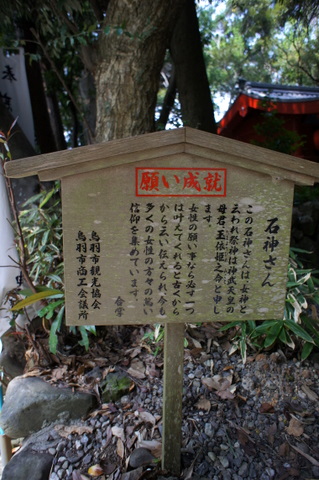 願い成就
石神さん
この石神さんは、女神と
云われ祭神は神武天皇の
母君、玉依姫之命と申し
ます。
女性の願い事なら必ず一つ
は叶えてくれると古くか
から云い伝えられ、今も
多くの女性の方々の篤い
信仰を集めています。
合掌
鳥羽市観光協会
鳥羽市商工会議所